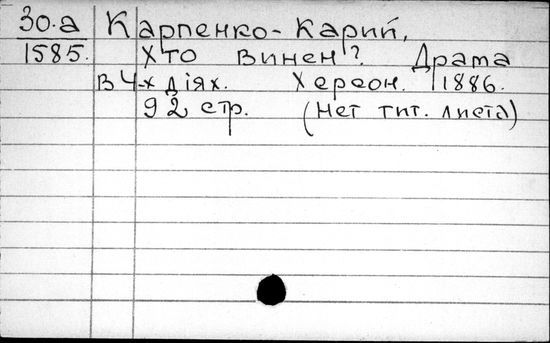 30.а Карпенко-Карий,
1585. Хто винен? Драма
в 4-х діях. Херсон. 1886.
92 стр. (Нет тит. листа)